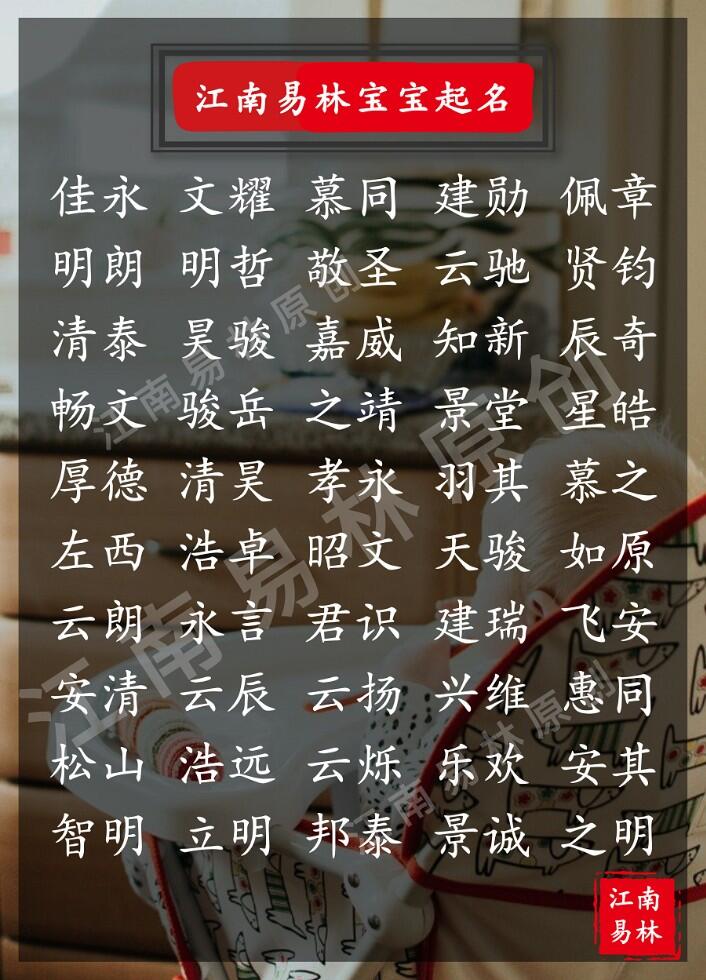 江南易林宝宝起名
佳永 文耀 慕同 建勋 佩章
明朗 明哲 敬圣 云驰 贤钧
清泰 昊骏 嘉威 知新 辰奇
畅文 骏岳 之靖 景堂 星皓
厚德 清昊 孝永 羽其 慕之
左西 浩卓 昭文 天骏 如原
云朗 永言 君识 建瑞 飞安
安清 云辰 云扬 兴维 惠同
松山 浩远 云烁 乐欢 安其
智明 立明 邦泰 景诚 之明
江南易林原创
江南易林原创
江南易林原创
江南
易林